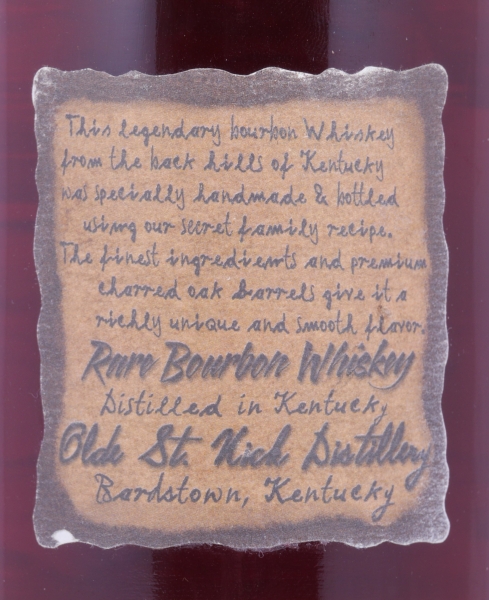 This legendary bourbon Whiskey
from the back hills of Kentucky
was specially handmade & bottled
using our secret family recipe.
The finest ingredients and premium
charred oak barrels give it a
richly unique and smooth flavor.
Rare Bourbon Whiskey
Distilled in Kentucky
Olde St. Nick Distillery
Bardstown, Kentucky